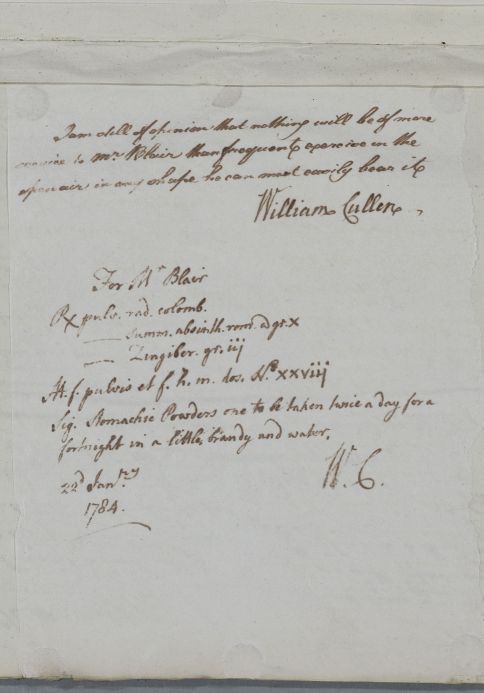 I am still of opinion that nothing will be of more
service to Mr Blair than frequent exercise in the
open air in any shape he can most easily bear it
William Cullen
For Mr Blair
Rx pulv. rad. colomb.
summ. absinth. rom. a gr. x
Zingiber. gr. iij
M. f. pulvis et f. h. m. dos. No xxviij
Sig. Stomachic Powders one to be taken twice a day for a
fortnight in a little brandy and water.
22d Janry
W. C.
1784.